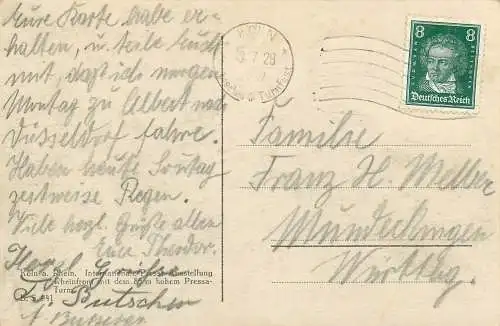 Eure Karte habe er-
halten, u. teile Euch
mit, daß ich morgen
Montag zu Albert nach
Düsseldorf fahre.
Haben heute Sonntag
zeitweise Regen.
Viele herzl. Grüße allen
Euer Theodor.
Herzl.
Butscher
Köln a. Rhein. Internationale Presse-Ausstellung
Rheinfront mit dem 85 m hohem Pressa-
Turm
KÖLN
7.28
Turnfest
8 8
Deutsches Reich
Familie
Franz H. Melber
Munderkingen
Württbg.